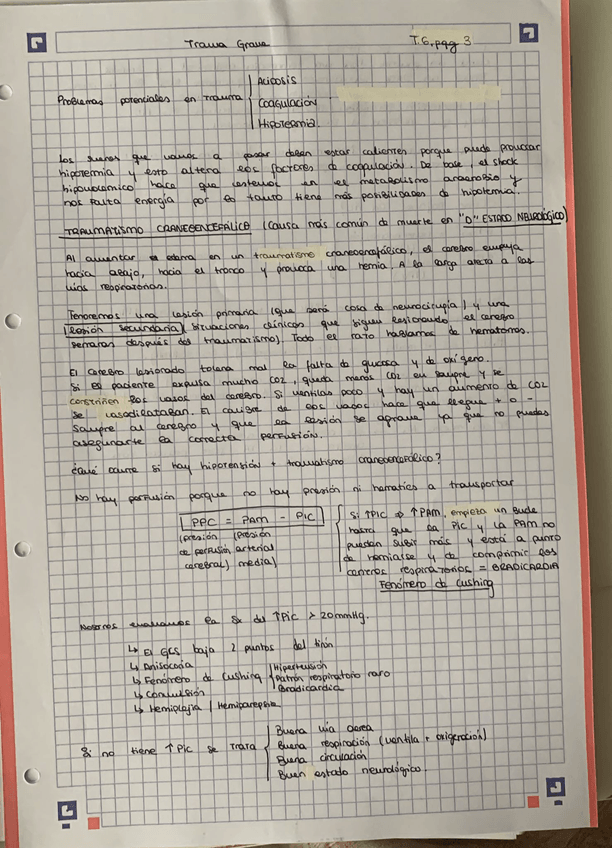 Trauma Grave
T.6, pag 3
Problemas potenciales en trauma
Acidosis
Coagulación
Hipotermia.
Los sueros que vamos a pasar deben estar calientes porque puede provocar
hipotermia y esto altera los factores de coagulación. De base, el shock
hipovolémico hace que estemos en el metabolismo anaerobio y
nos falta energía por lo tanto tiene más posibilidades de hipotermia.
TRAUMATISMO CRANEOENCEFÁLICO (Causa más común de muerte en "D" ESTADO NEUROLÓGICO)
Al aumentar edema en un traumatismo craneoencefálico, el cerebro empuja
hacia abajo, hacia el tronco y provoca una hernia. A la larga afecta a las
vías respiratorias.
Tenemos una lesión primaria (que será cosa de neurocirugía) y una
lesión secundaria (situaciones clínicas que siguen lesionando el cerebro
semanas después del traumatismo). Todo el rato hablamos de hematomas.
El cerebro lesionado tolera mal la falta de glucosa y de oxígeno.
Si el paciente expulsa mucho CO2, queda menos CO2 en sangre y se
constriñen los vasos del cerebro. Si ventilas poco y hay un aumento de CO2
se vasodilataban. El calibre de los vasos hace que llegue + o -
sangre al cerebro y que la lesión se agrave ya que no puedes
asegurarte la correcta perfusión.
¿Qué ocurre si hay hipotensión + traumatismo craneoencefálico?
No hay perfusión porque no hay presión ni hematíes a transportar
PPC = PAM - PIC
(presión (presión
de perfusión arterial
cerebral) media)
Si ↑PIC ⇒ ↑PAM, empieza un bucle
hasta que la PIC y la PAM no
puedan subir más y está a punto
de herniarse y de comprimir los
centros respiratorios = BRADICARDIA
Fenómeno de Cushing
Nosotros evaluamos la Sx del ↑PIC > 20mmHg.
↳ El GCS baja 2 puntos del tirón
↳ Anisocoria
↳ Fenómeno de Cushing
Hipertensión
Patrón respiratorio raro
Bradicardia
↳ Convulsión
↳ Hemiplejia / Hemiparesia
Si no tiene ↑PIC se trata
Buena vía aerea
Buena respiración (ventila + oxigenación)
Buena circulación
Buen estado neurológico.